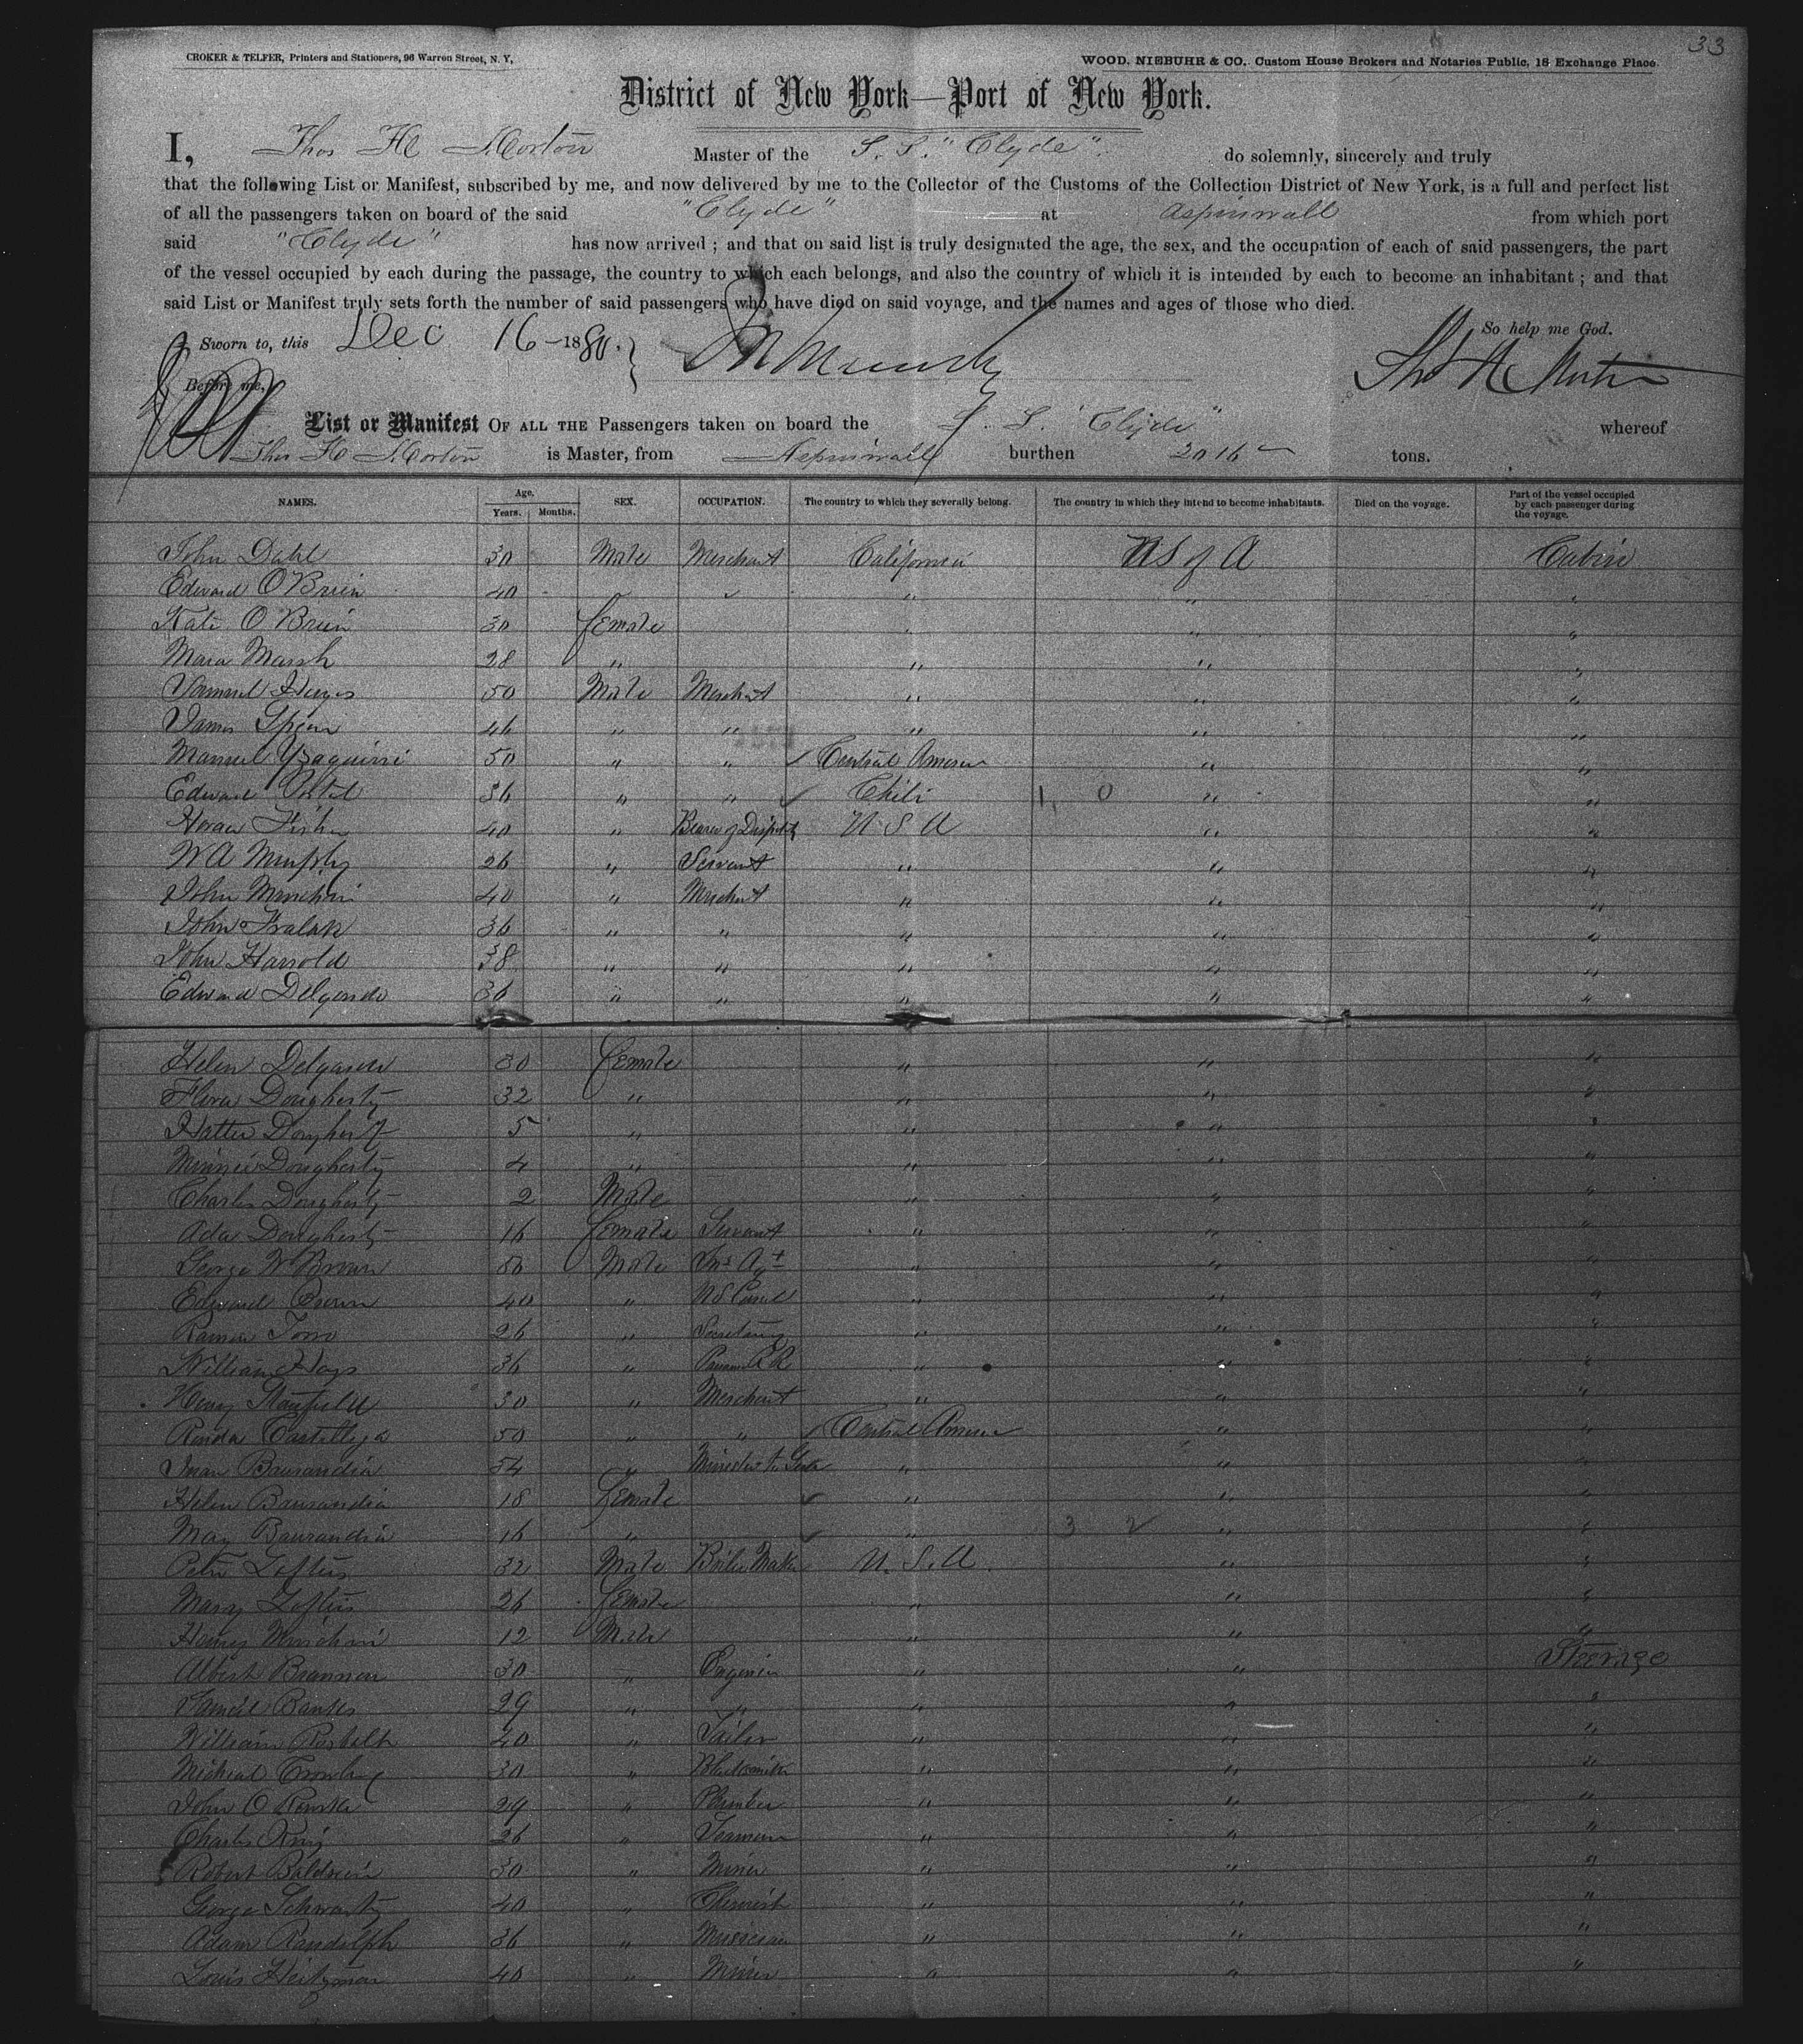 33
CROKER & TELFER, Printers and Stationers, 96 Warren Street, N. Y,
WOOD, NIEBUHR & CO., Custom House Brokers and Notaries Public, 18 Exchange Place.
District of New York—Port of New York.
I, Thos H Morton Master of the S. S. "Clyde". do solemnly, sincerely and truly
that the following List or Manifest, subscribed by me, and now delivered by me to the Collector of the Customs of the Collection District of New York, is a full and perfect list
of all the passengers taken on board of the said "Clyde" at Aspinwall from which port
said "Clyde" has now arrived ; and that on said list is truly designated the age, the sex, and the occupation of each of said passengers, the part
of the vessel occupied by each during the passage, the country to which each belongs, and also the country of which it is intended by each to become an inhabitant ; and that
said List or Manifest truly sets forth the number of said passengers who have died on said voyage, and the names and ages of those who died.
So help me God.
Sworn to, this Dec 16 - 1880.
Thos H Morton
Before me,
List or Manifest OF ALL THE Passengers taken on board the S. S. "Clyde" whereof
Thos H Morton is Master, from Aspinwall burthen 2016 tons.
NAMES. Age. Years. Months. SEX. OCCUPATION. The country to which they severally belong. The country in which they intend to become inhabitants. Died on the voyage. Part of the vessel occupied by each passenger during the voyage.
John Dahl 30 Male Merchant California U S of A Cabin
Edward O'Brien 40 " " "
Kate O Brien 30 Female " " "
Mara Marsh 28 " " " "
Samuel 50 Male Merchant " " "
James Spear 46 " " " " "
Manuel Yzaguirri 50 " " Central America " "
Edward 36 " " Chili 1, 0 " "
Horace Fisher 40 " Bearer of Dispatch U S A " "
W A Murphy 26 " Servant " " "
John 40 " Merchant " " "
John 36 " " " " "
John Harrold 38 " " " " "
Edward Delgardo 36 " " " " "
Helen Delgardo 30 Female " " "
Flora Dougherty 32 " " " "
Hattie Dougherty 5 " " " "
Minnie Dougherty 4 " " " "
Charles Dougherty 2 Male " " "
Ada Dougherty 16 Female Servant " " "
George W Brown 50 Male Ins Agt " " "
Edward Brown 40 " US Consul " " "
Ramon Toro 26 " Secretary " " "
William Hays 36 " Panama RR " " "
Henry Stanfield 30 " Merchant " " "
50 " " Central America " "
Juan 54 " Minister to " " "
Helen 18 Female " " "
May 16 " " 3 2 " "
Peter Loftus 32 Male Boiler Maker U. S. A. " "
Mary Loftus 26 Female " " "
Henry 12 Male " " "
Albert Brannon 30 " Engineer " " Steerage
Samuel Banks 29 " " " " "
William 40 " Tailor " " "
Micheal Crowley 30 " Blacksmith " " "
John O Rourke 29 " Plumber " " "
Charles King 26 " Seaman " " "
Robert Baldwin 30 " Miner " " "
George Schwartz 40 " Chemist " " "
Adam Randolph 36 " Musician " " "
Louis Heitzman 40 " Miner " " "